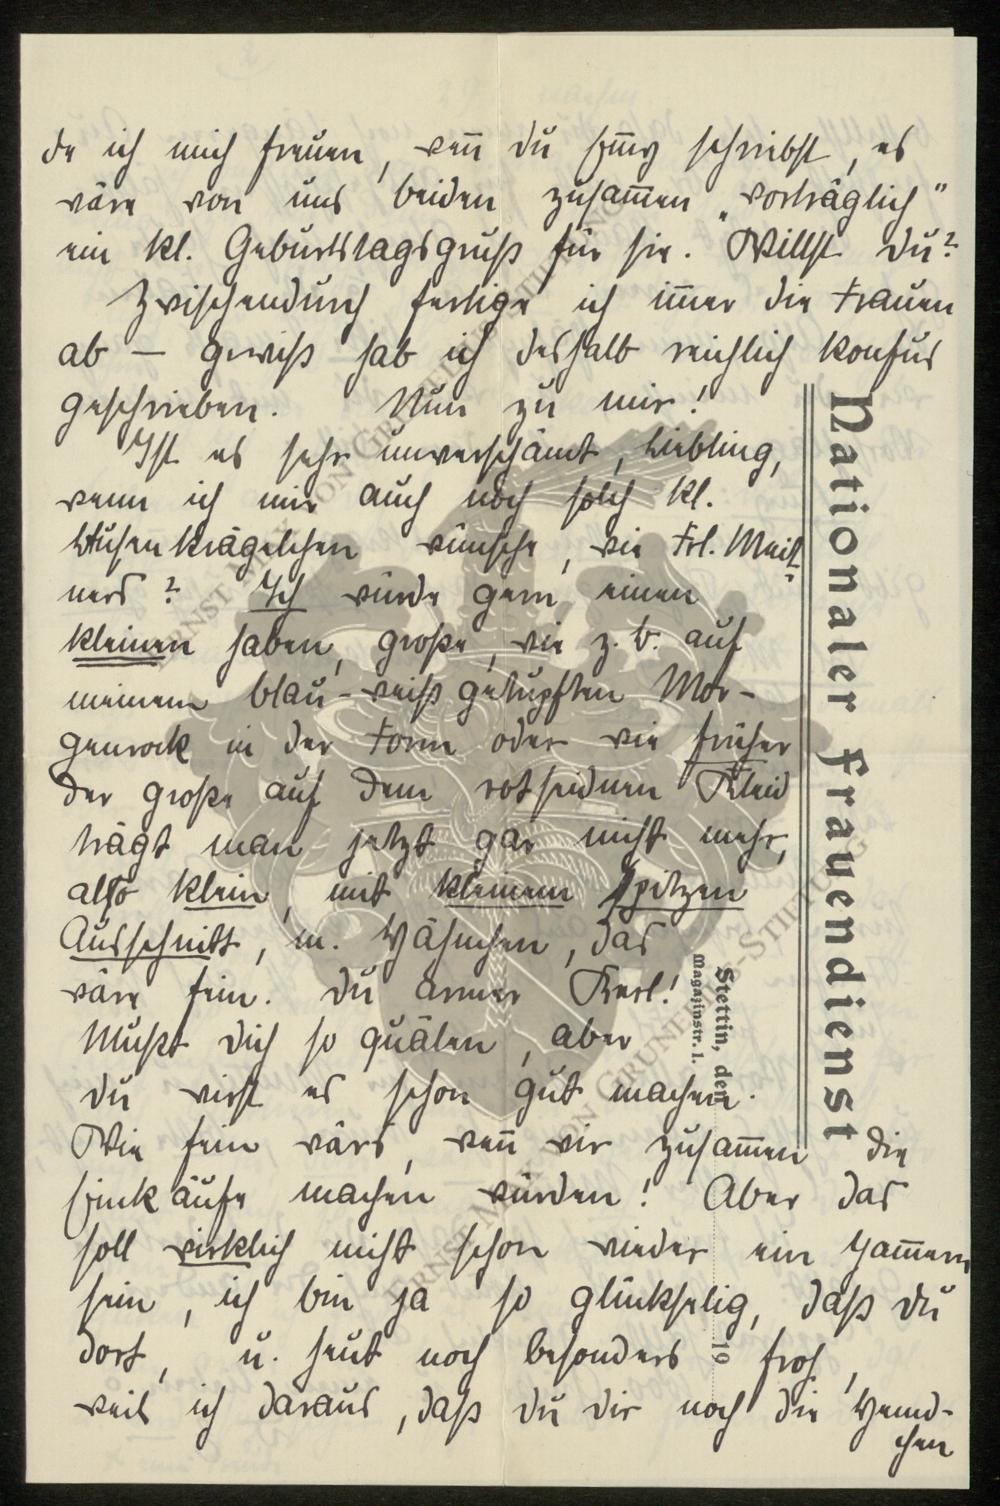 de ich mich freuen, wen̄ du Emy schriebst, es
wäre von uns beiden zusam̄en „vorträglich"
ein kl. Geburtstagsgruß für sie. Willst du?
Zwischendurch fertige ich im̄er die Frauen
ab – gewiß hab ich deshalb reichlich konfus
geschrieben. Nun zu mir!
Ist es sehr unverschämt, Liebling,
wenn ich mir auch noch solch kl.
Blusenkrägelchen wünsche, wie Frl. Meiß-
ners? Ich würde gern einen
kleinen haben, große, wie z. b. auf
meinem blau-weiß getupften Mor-
genrock in der Form oder wie früher
der große auf dem rotseidnen Kleid
trägt man jetzt gar nicht mehr,
also klein, mit kleinem spitzen
Ausschnitt, m. Hähnchen, das
wäre fein. Du armer Kerl!
Mußt dich so quälen, aber
du wirst es schon gut machen.
Wie fein wärs, wen̄ wir zusam̄en die
Einkäufe machen würden! Aber das
soll wirklich nicht schon wieder ein Jam̄ern
sein, ich bin ja so glückselig, daß du
dort, u. heut noch besonders froh,
weil ich daraus, daß du dir noch die Hemd-
chen
Nationaler Frauendienst
Stettin, den
Magazinstr. 1.
19
ERNST MORITZ VON GRUNELIUS-STIFTUNG